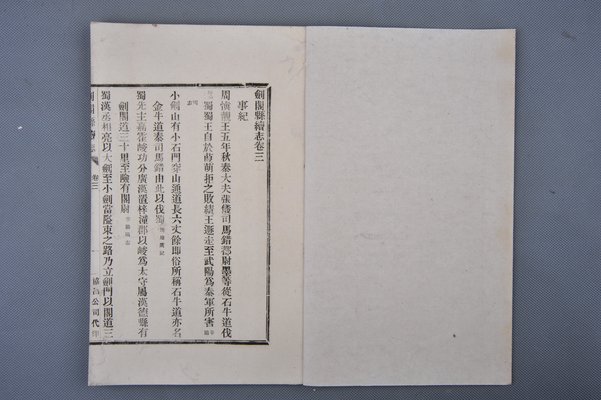 劍閣縣續志卷三
事紀
周愼靚王五年秋秦大夫張儀司馬錯都尉墨等從石牛道伐
蜀蜀王自於葭萌拒之敗績王遯走至武陽爲秦軍所害
小劍山有小石門穿山通道長六丈餘卽俗所稱石牛道亦名
金牛道秦司馬錯由此以伐蜀
蜀先主嘉霍峻功分廣漢置梓潼郡以峻爲太守屬漢德縣有
劍閣道三十里至險有閣尉
蜀漢丞相亮以大劍至小劍當隘束之路乃立劍門以閣道三
卷三
公司代印